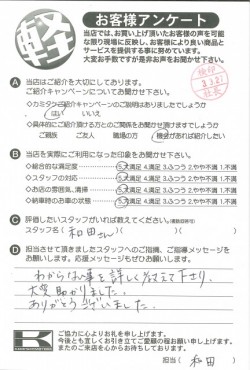 軽
お客様アンケート
当店では、お買い上げ頂いたお客様の声を可能
な限り現場に反映し、お客様により良い商品と
サービスを提供する事に努めています。
大変お手数ですが是非お声をお聞かせ下さい。
A 当店はご紹介を大切にしております。
ご紹介キャンペーンについてお聞かせ下さい。
ご紹介キャンペーンの説明はありましたでしょうか
はい いいえ
ご親族 ご友人 職場の方 機会があれば紹介したい
B 当店を実際にご利用になった印象をお聞かせ下さい。
◇総合的な満足度 5.大満足 4.満足 3.ふつう 2.やや不満 1.不満
◇スタッフの対応 5.大満足 4.満足 3.ふつう 2.やや不満 1.不満
◇お店の雰囲気、清掃 5.大満足 4.満足 3.ふつう 2.やや不満 1.不満
◇納車時のお車の状態 5.大満足 4.満足 3.ふつう 2.やや不満 1.不満
C 評価したいスタッフがいれば教えてください。
スタッフ名( 和田さん )
D 担当させて頂きましたスタッフへのご指摘、ご指導メッセージを
お願いします。応援メッセージもぜひお願いします。
わからない事を詳しく教えて下さり、
大変助かりました。
ありがとうございました。
K
ご協力に心よりお礼を申し上げます。
今後とも宜しくお引き立てご愛顧の程お願い申し上げます。
またのご来店を心からお待ちしております。
担当( 和田 )